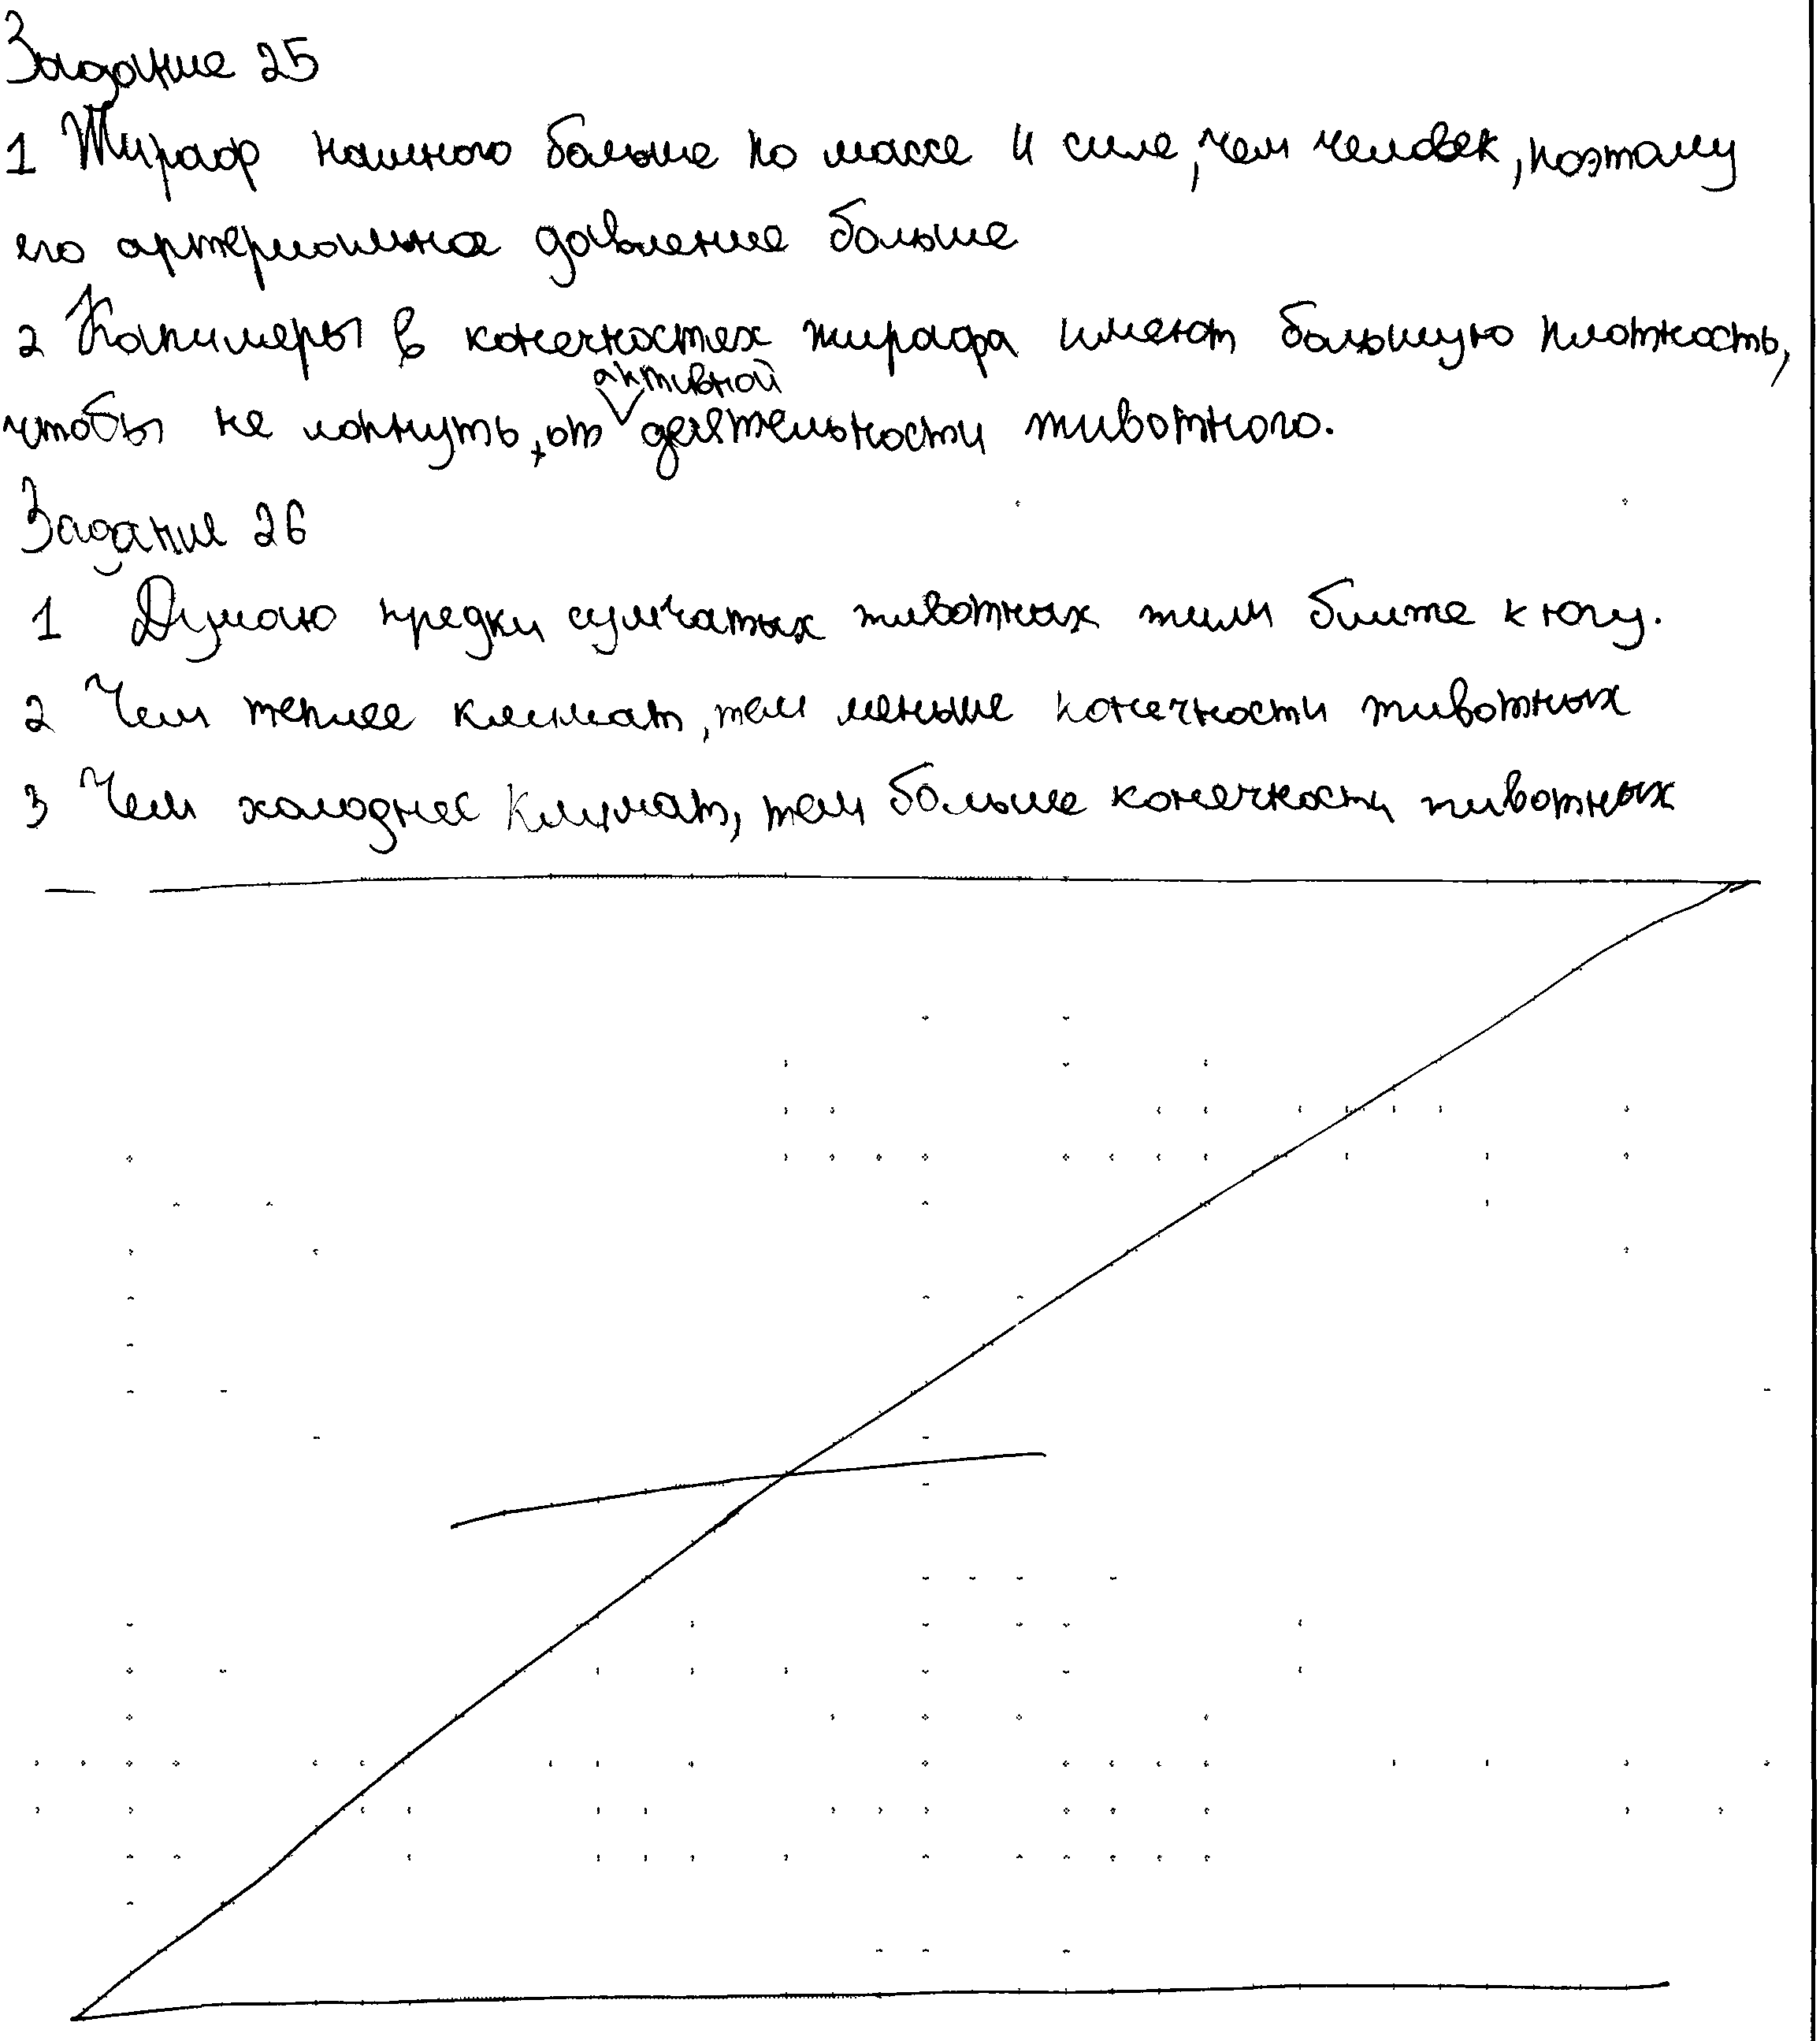 Задание 25
1 Жираф намного больше по массе и силе, чем человек, поэтому
его артериальное давление больше
2 Капиляры в конечностях жирафа имеют большую плотность,
чтобы не лопнуть, от активной деятельности животного.
Задание 26
1 Думаю предки сумчатых животных жили ближе к югу.
2 Чем теплее климат, тем меньше конечности животных
3 Чем холоднее климат, тем больше конечности животных